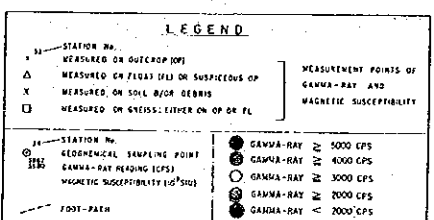 LEGEND
STATION No.
MEASURED ON OUTCROP [OP]
Δ MEASURED ON FLOAT (FL) OR SUSPICEOUS OP
X MEASURED ON SOIL &/OR DEBRIS
□ MEASURED ON GNEISS: EITHER ON OP OR FL
MEASUREMENT POINTS OF
GAMMA-RAY AND
MAGNETIC SUSCEPTIBILITY
STATION No.
GEOCHEMICAL SAMPLING POINT
GAMMA-RAY READING (CPS)
MAGNETIC SUSCEPTIBILITY
FOOT-PATH
GAMMA-RAY ≧ 5000 CPS
GAMMA-RAY ≧ 4000 CPS
GAMMA-RAY ≧ 3000 CPS
GAMMA-RAY ≧ 2000 CPS
GAMMA-RAY < 2000 CPS